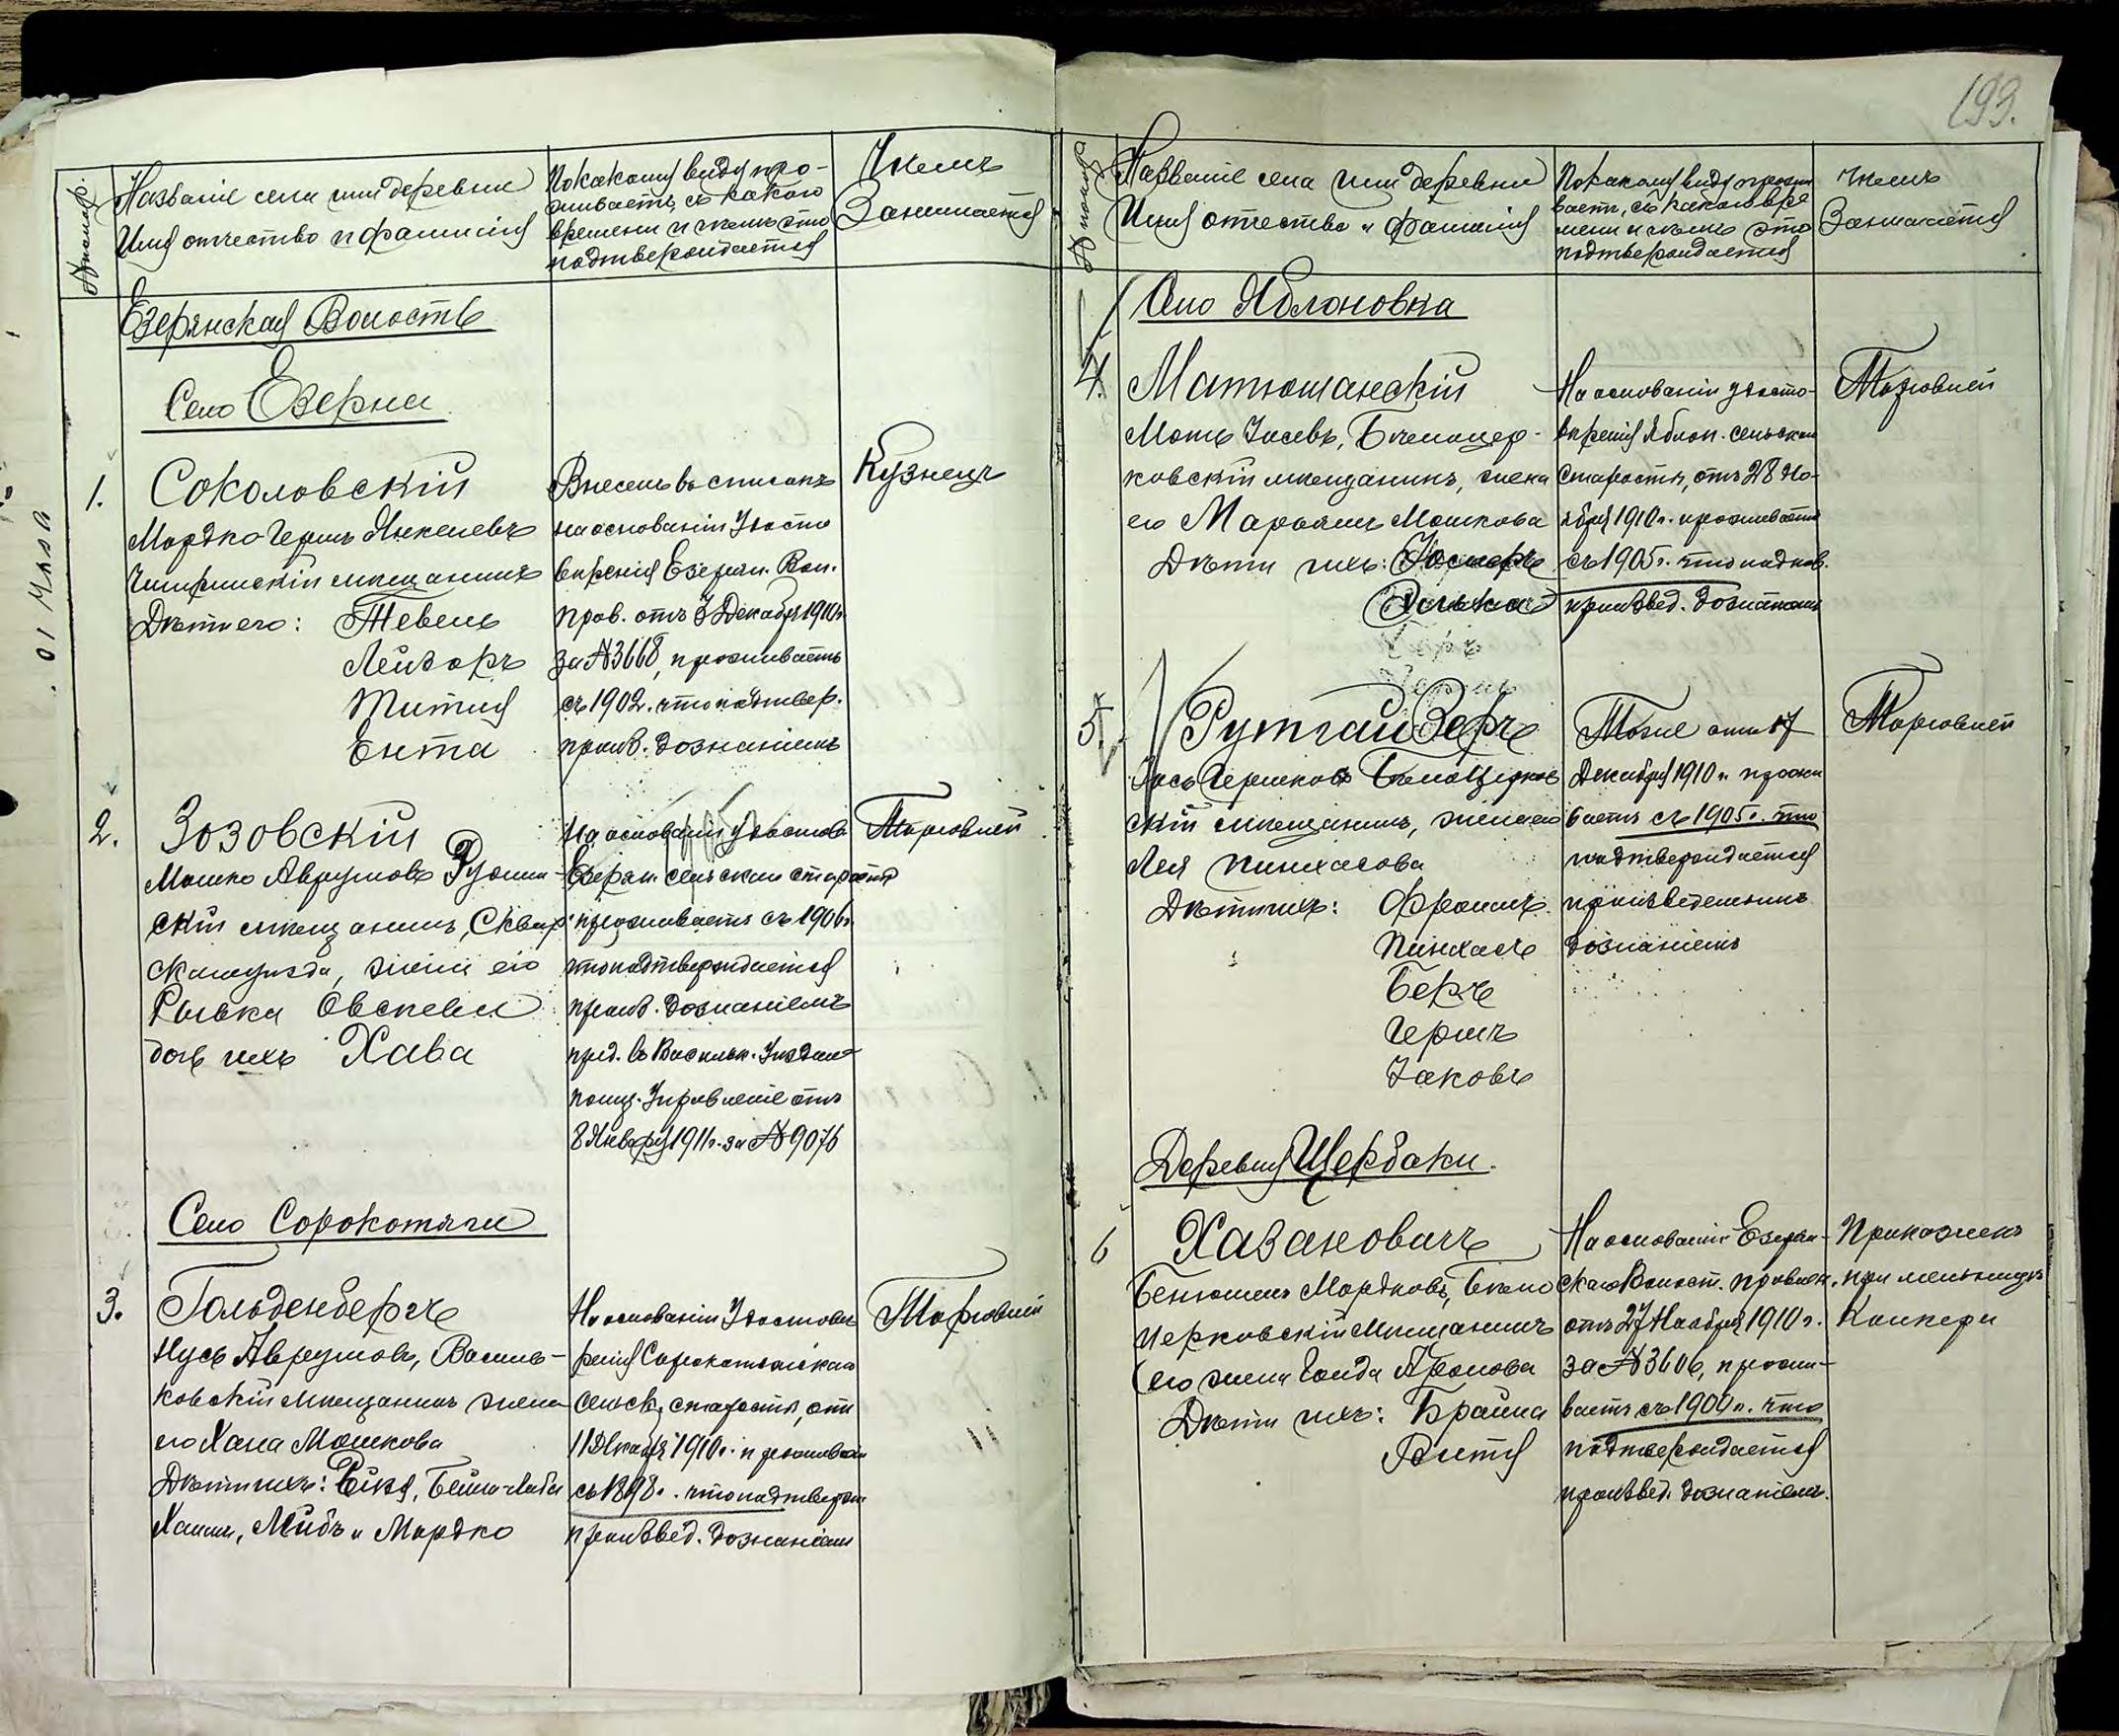 193.
№ по пор.
Названіе села или деревни
Имя отчество и фамилія
По какому виду про-
живаетъ, съ какого
времени и чѣмъ это
подтверждается
Чѣмъ
Занимается
Езерянская Волость
Село Езерна
1.
Соколовскій
Мордко-Гершъ Янкелевъ
Чигиринскій мѣщанинъ
Дѣти его: Тевель
Лейзоръ
Тития
Ента
Внесенъ въ списокъ
на основаніи Удосто
вѣренія Езерян. Вол.
Прав. отъ 3 Декабря 1910 г.
за № 3668, проживаетъ
съ 1902. что подтвер.
произв. дознаніемъ
Кузнецъ
2.
Зозовскій
Мошко Аврумовъ Ружин-
скій мѣщанинъ, Сквир
скаго уѣзда, жена его
Рывка Овсеева
дочь ихъ Хава
На основаніи удостов.
Езерян. сельскаго старосты
проживаетъ съ 1906 г.
что подтверждается
произв. дознаніемъ
пред. въ Васильк. Уѣздное
полиц. Управленіе отъ
8 Января 1911 г. за № 9076
Торговлей
Село Сорокотяги
3.
Гольденбергъ
Нусь Аврумовъ, Василь-
ковскій мѣщанинъ жена
его Хана Мошкова
Дѣти ихъ: Бейла-Либа
Хаим, Лейбъ и Мордко
На основаніи Удостовѣ
ренія Сорокотяжскаго
сельск. старосты, отъ
11 Декабря 1910 г. проживаетъ
съ 1898 г. что подтвержд.
произвед. дознаніемъ
Торговлей
№ по пор.
Названіе села или деревни
Имя отчество и фамилія
По какому виду прожи
ваетъ, съ какого вре
мени и чѣмъ это
подтверждается
Чѣмъ
Занимается
Село Яблоновка
4.
Матюшанскій
Мотъ Іосевъ, Бѣлоцер-
ковскій мѣщанинъ, жена
его Марьямъ Мошкова
Дѣти ихъ:
На основаніи удосто-
вѣренія Яблон. сельскаго
Старосты, отъ 28 Но-
ября 1910 г. проживаетъ
съ 1905 г. что подтв.
произвед. дознаніемъ
Торговлей
5.
Рутгайзеръ
Іось Гершковъ Бѣлоцерков
скій мѣщанинъ, жена его
Лея Пинхасова
Дѣти ихъ: Фроимъ
Пинхасъ
Беръ
Гершъ
Яковъ
Тоже отъ 17
Декабря 1910 г. прожи
ваетъ съ 1905 г. что
подтверждается
произведеннымъ
дознаніемъ
Торговлей
Деревня Щербаки.
6
Хазановичъ
Беньюминъ Мордковъ, Бѣло
церковскій Мѣщанинъ
его жена Голда Аронова
Дѣти ихъ: Брайна
Витя
На основаніи Езерян-
скаго Волост. Правлен.
отъ 27 Ноября 1910 г.
за № 3606, прожи-
ваетъ съ 1900 г. что
подтверждается
произвед. дознаніемъ.
Прикащикъ
при мельницѣ